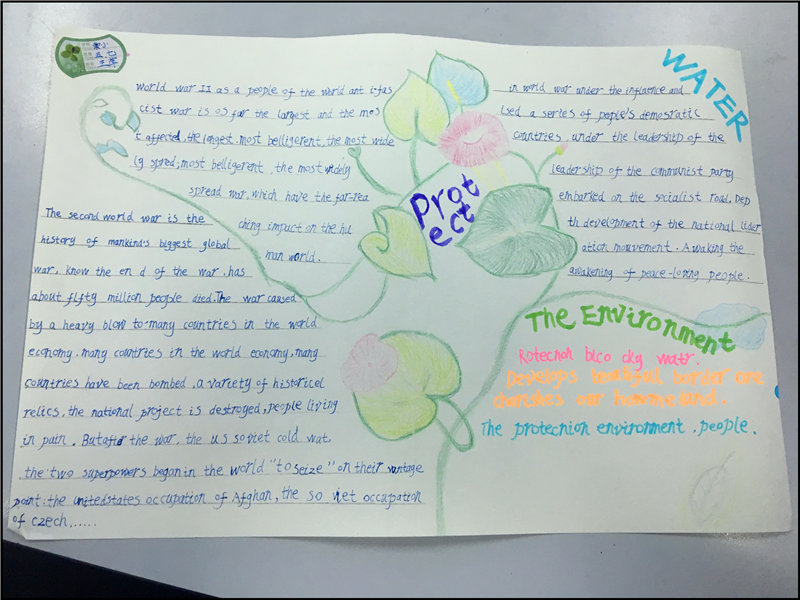 world war II as a people of the world ant i-fas
cist war is os far the largest and the mos
t affected, the longest, most belligerent, the most wide
ly spred, most belligerent, the most widely
spread war, which have the far-rea
ching impact on the hu
man world.
The second world war is the
history of mankind's biggest global
war, know the en d of the war, has
about flfty million people died. The war caused
by a heavy blow to many countries in the world
economy, many countries in the world economy, many
countries have been bombed, a variety of historicel
relics, the national project is destroyed, people living
in pain. But after the war, the us soviet cold wat,
the two superpowers began in the world "to seize" on their vantage
point: the unitedstates occupation of Afghan, the so viet occupation
of czech,.....
Prot
ect
WATER
in world war under the influence and
ised a series of people's demostratic
countries, under the leadership of the
leadership of the communist party
embarked on the socialist road, Dep
th development of the national liber
ation mouvement. Awaking the
awakening of peace-loving people.
The Environment
Rotechoh blco cky watr.
Develops beautiful border
cherishes our
The protecnion environment. people.